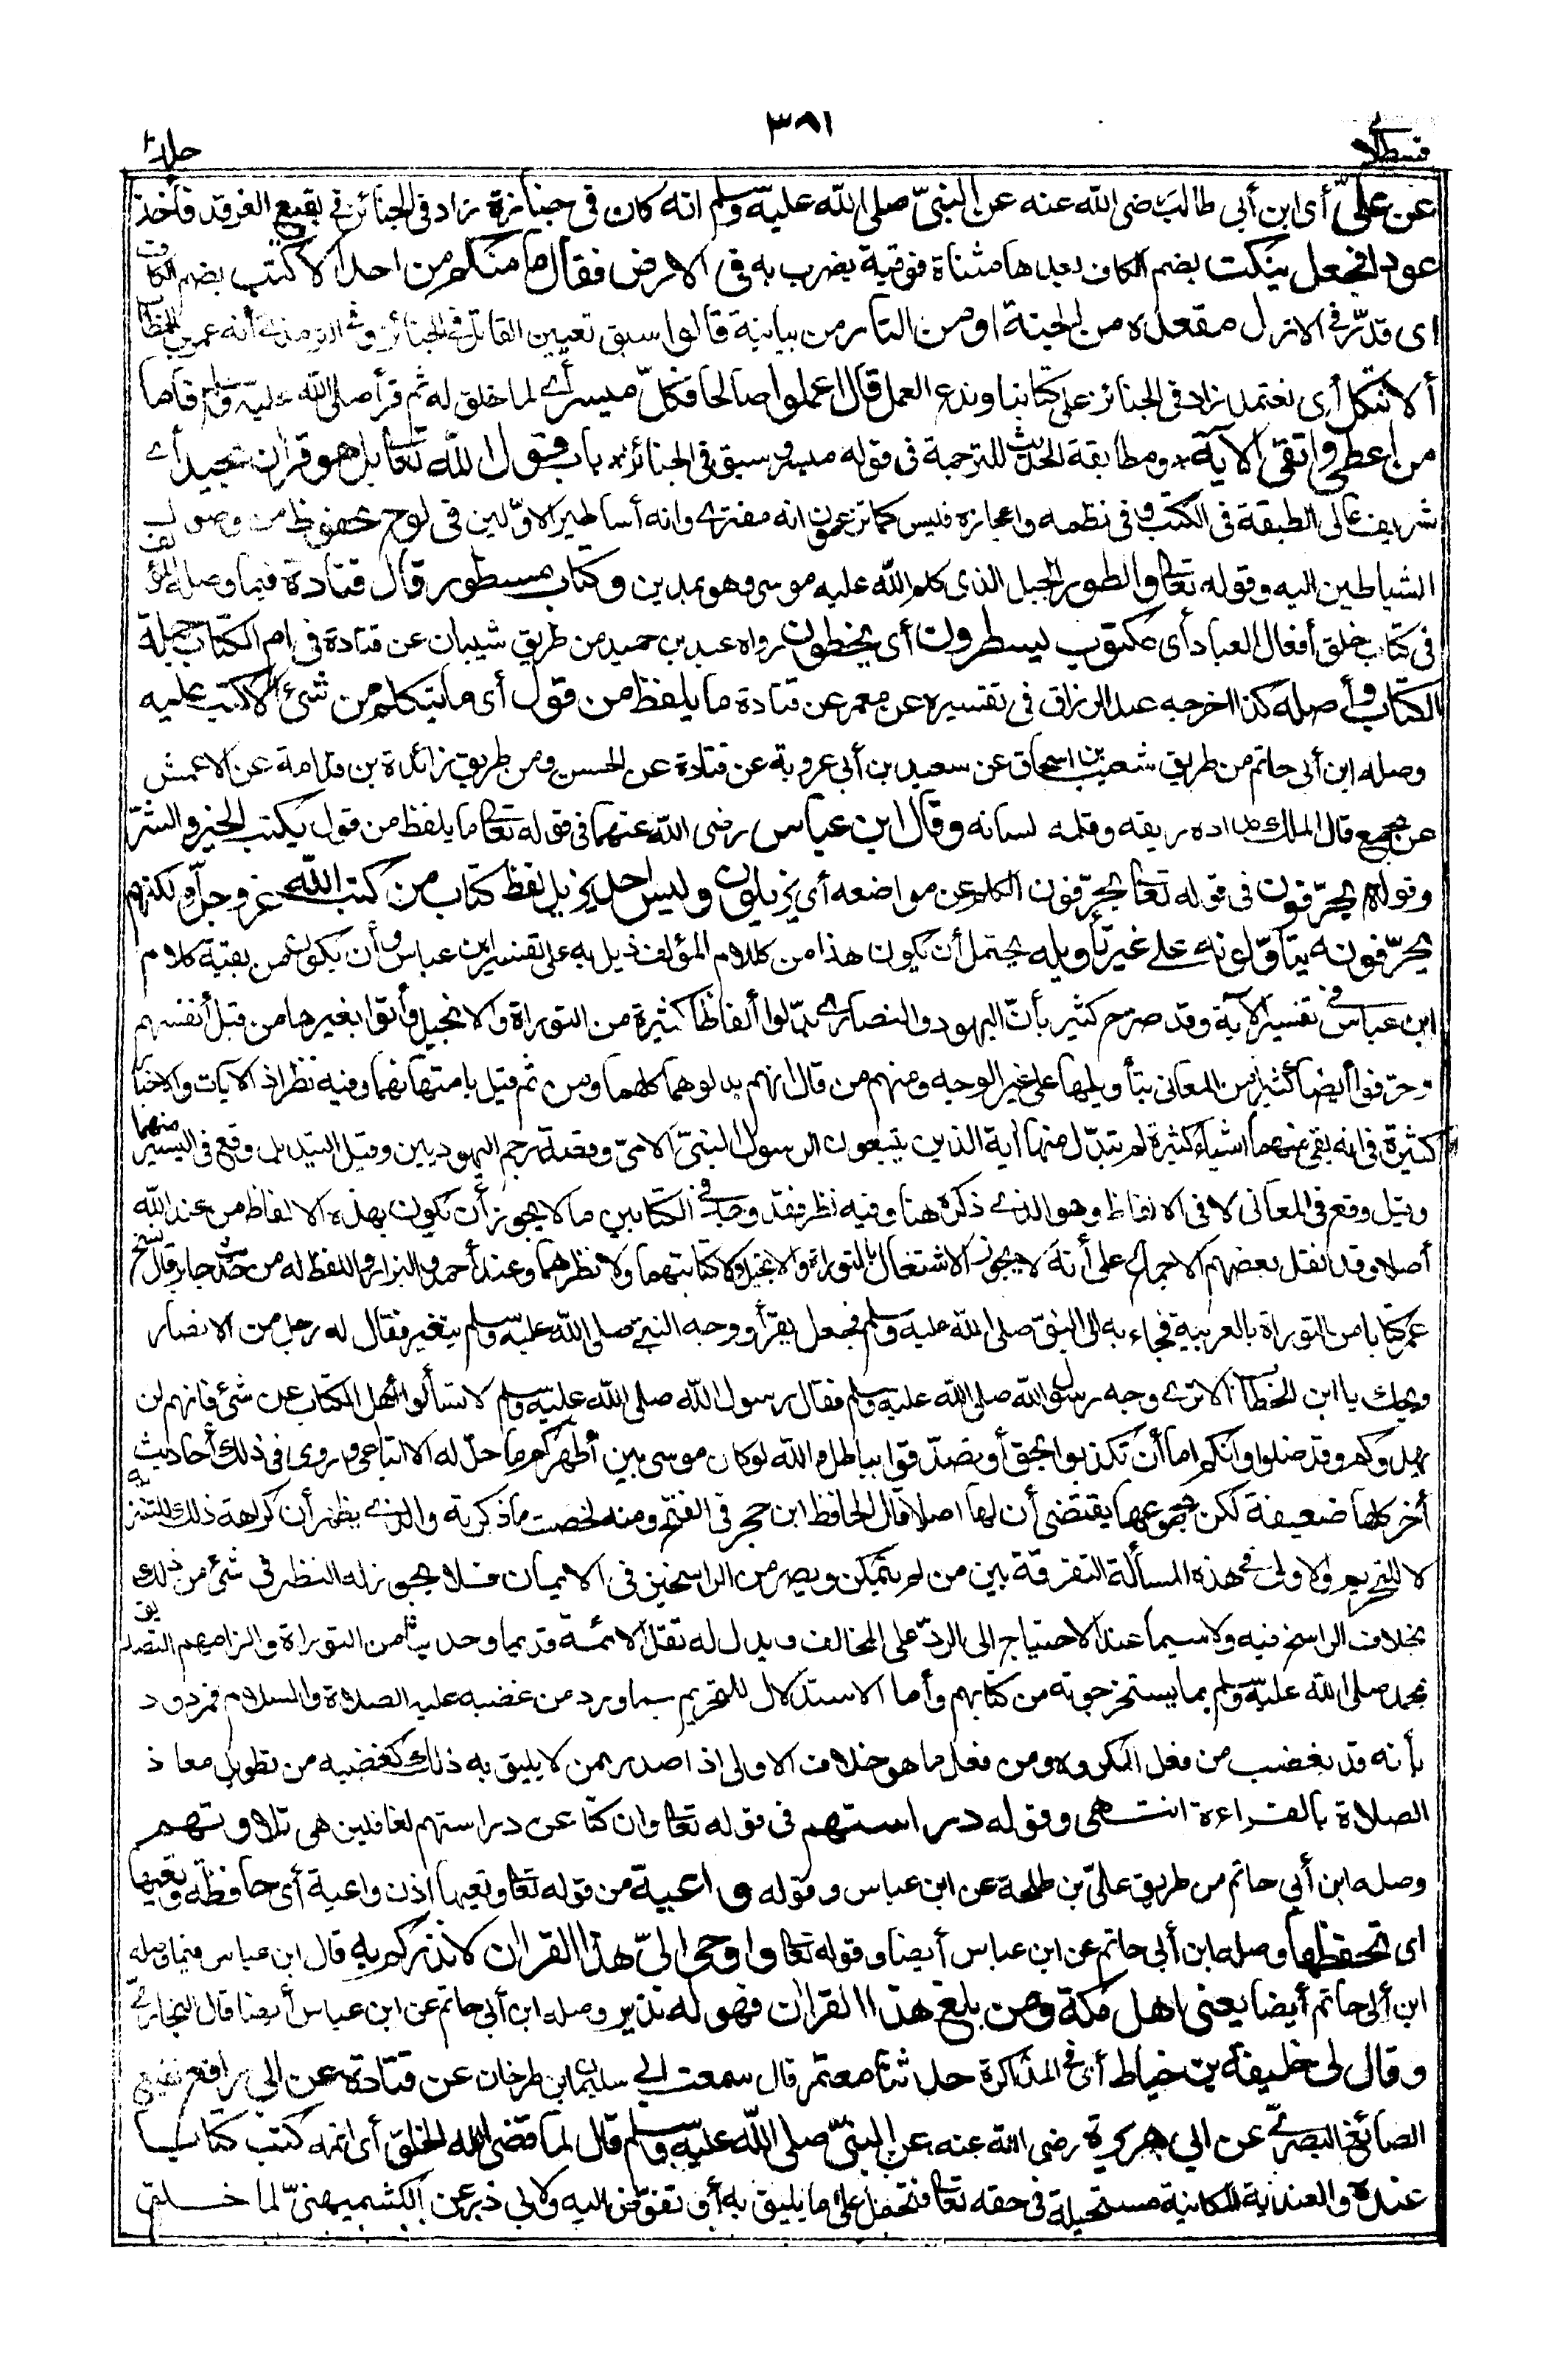 قسطلا
٣٨١
جلد
عن علىّ أى ابن أبى طالب رضى الله عنه عن النبىّ صلى الله عليه وسلم انه كان فى جنازة زاد فى الجنائز فى بقيع الغرقد فأخذ
عودا فجعل ينكت بضم الكاف بعدها مثناة فوقية يضرب به فى الارض فقال ما منكم من احد الا كتب بضم الكاف
اى قدّر فى الازل مقعده من الجنة او من النار من بيانية قالوا سبق تعيين القائل فى الجنائز وفى الترمذى أنه عمر بن الخطاب
ألا نتكل أى نعتمد زاد فى الجنائز على كتابنا وندع العمل قال اعملوا صالحا فكلّ ميسر أى لما خلق له ثم قرأ صلى الله عليه وسلم فأما
من أعطى واتقى الآية ومطابقة الحديث للترجمة فى قوله ميسر وسبق فى الجنائز باب قول الله تعالى بل هو قرآن مجيد أى
شريف عالى الطبقة فى الكتب وفى نظمه واعجازه فليس كما تزعمون انه مفترى وانه أساطير الاوّلين فى لوح محفوظ من وصول
الشياطين اليه وقوله تعالى والطور الجبل الذى كلم الله عليه موسى وهو بمدين وكتاب مسطور قال قتادة فيما وصله المؤلف
فى كتاب خلق أفعال العباد أى مكتوب يسطرون أى يخطون رواه عبد بن حميد من طريق شيبان عن قتادة فى ام الكتاب جملة
الكتاب وأصله كذا اخرجه عبد الرزاق فى تفسيره عن معمر عن قتادة ما يلفظ من قول أى ما يتكلم من شئ الا كتب عليه
وصله ابن أبى حاتم من طريق شعيب بن اسحاق عن سعيد بن أبى عروبة عن قتادة عن الحسن ومن طريق زائدة بن قدامة عن الاعمش
عن مجمع قال الملك مداده ريقه وقلمه لسانه وقال ابن عباس رضى الله عنهما فى قوله تعالى ما يلفظ من قول يكتب الخير والشرّ
وقوله يحرّفون فى قوله تعالى يحرّفون الكلم عن مواضعه أى يزيلون وليس احد يزيل لفظ كتاب من كتب الله عز وجلّ ولكنهم
يحرّفونه يتأوّلونه على غير تأويله يحتمل أن يكون هذا من كلام المؤلف ذيل به على تفسير ابن عباس وأن يكون من بقية كلام
ابن عباس فى تفسير الآية وقد صرّح كثير بأنّ اليهود والنصارى بدّلوا ألفاظا كثيرة من التوراة والانجيل وأتوا بغيرها من قبل أنفسهم
وحرّفوا أيضا كثيرا من المعانى بتأويلها على غير الوجه ومنهم من قال انهم بدلوهما كلهما ومن ثم قيل بامتهانهما وفيه نظر اذ الآيات والاخبار
كثيرة فى انه بقى منهما اشياء كثيرة لم تبدّل منها آية الذين يتبعون الرسول النبىّ الامىّ وقصة رجم اليهوديين وقيل التبديل وقع فى اليسير منهما
وقيل وقع فى المعانى لا فى الالفاظ وهو الذى ذكره هنا وفيه نظر فقد وجد فى الكتابين ما لا يجوز أن يكون بهذه الالفاظ من عند الله
أصلا وقد نقل بعضهم الاجماع على أنه لا يجوز الاشتغال بالتوراة والانجيل ولا كتابتهما ولا نظرهما وعند أحمد والبزار واللفظ له من حديث جابر قال نسخ
عمر كتابا من التوراة بالعربية فجاء به الى النبىّ صلى الله عليه وسلم فجعل يقرأ ووجه النبى صلى الله عليه وسلم يتغير فقال له رجل من الانصار
ويحك يا ابن الخطاب الا ترى وجه رسول الله صلى الله عليه وسلم فقال رسول الله صلى الله عليه وسلم لا تسألوا أهل الكتاب عن شئ فانهم لن
يهدوكم وقد ضلوا وانكم اما أن تكذبوا بحق أو تصدّقوا بباطل والله لو كان موسى بين أظهركم ما حلّ له الا اتباعى وروى فى ذلك أحاديث
أخر كلها ضعيفة لكن مجموعها يقتضى أن لها اصلا قال الحافظ ابن حجر فى الفتح ومنه لخصت ما ذكرته والذى يظهر أن كراهة ذلك للتنزيه
لا للتحريم والاولى فى هذه المسألة التفرقة بين من لم يتمكن ويصر من الراسخين فى الايمان فلا يجوز له النظر فى شئ من ذلك
بخلاف الراسخ فيه ولا سيما عند الاحتياج الى الردّ على المخالف ويدل له نقل الائمة قديما وحديثا من التوراة والزامهم التصديق
بمحمد صلى الله عليه وسلم بما يستخرجونه من كتابهم وأما الاستدلال للتحريم بما ورد من غضبه عليه الصلاة والسلام فمردود
بأنه قد يغضب من فعل المكروه ومن فعل ما هو خلاف الاولى اذا صدر ممن لا يليق به ذلك كغضبه من تطويل معاذ
الصلاة بالقراءة انتهى وقوله دراستهم فى قوله تعالى وان كنا عن دراستهم لغافلين هى تلاوتهم
وصله ابن أبى حاتم من طريق علىّ بن طلحة عن ابن عباس وقوله واعية من قوله تعالى وتعيها اذن واعية أى حافظة وتعيها
اى تحفظها وصله ابن أبى حاتم عن ابن عباس أيضا وقوله تعالى واوحى الىّ هذا القرآن لانذركم به قال ابن عباس فيما وصله
ابن أبى حاتم أيضا يعنى اهل مكة ومن بلغ هذا القرآن فهو له نذير وصله ابن أبى حاتم عن ابن عباس أيضا قال البخارىّ
وقال لى خليفة بن خياط أى فى المذاكرة حدثنا معتمر قال سمعت أبى سليمان بن طرخان عن قتادة عن ابى رافع نفيع
الصائغ البصرىّ عن ابى هريرة رضى الله عنه عن النبىّ صلى الله عليه وسلم قال لما قضى الله الخلق أى اتمه كتب كتابا
عنده والعندية المكانية مستحيلة فى حقه تعالى فتحمل على ما يليق به أو تفوّض اليه ولابى ذر عن الكشميهنىّ لما خلق